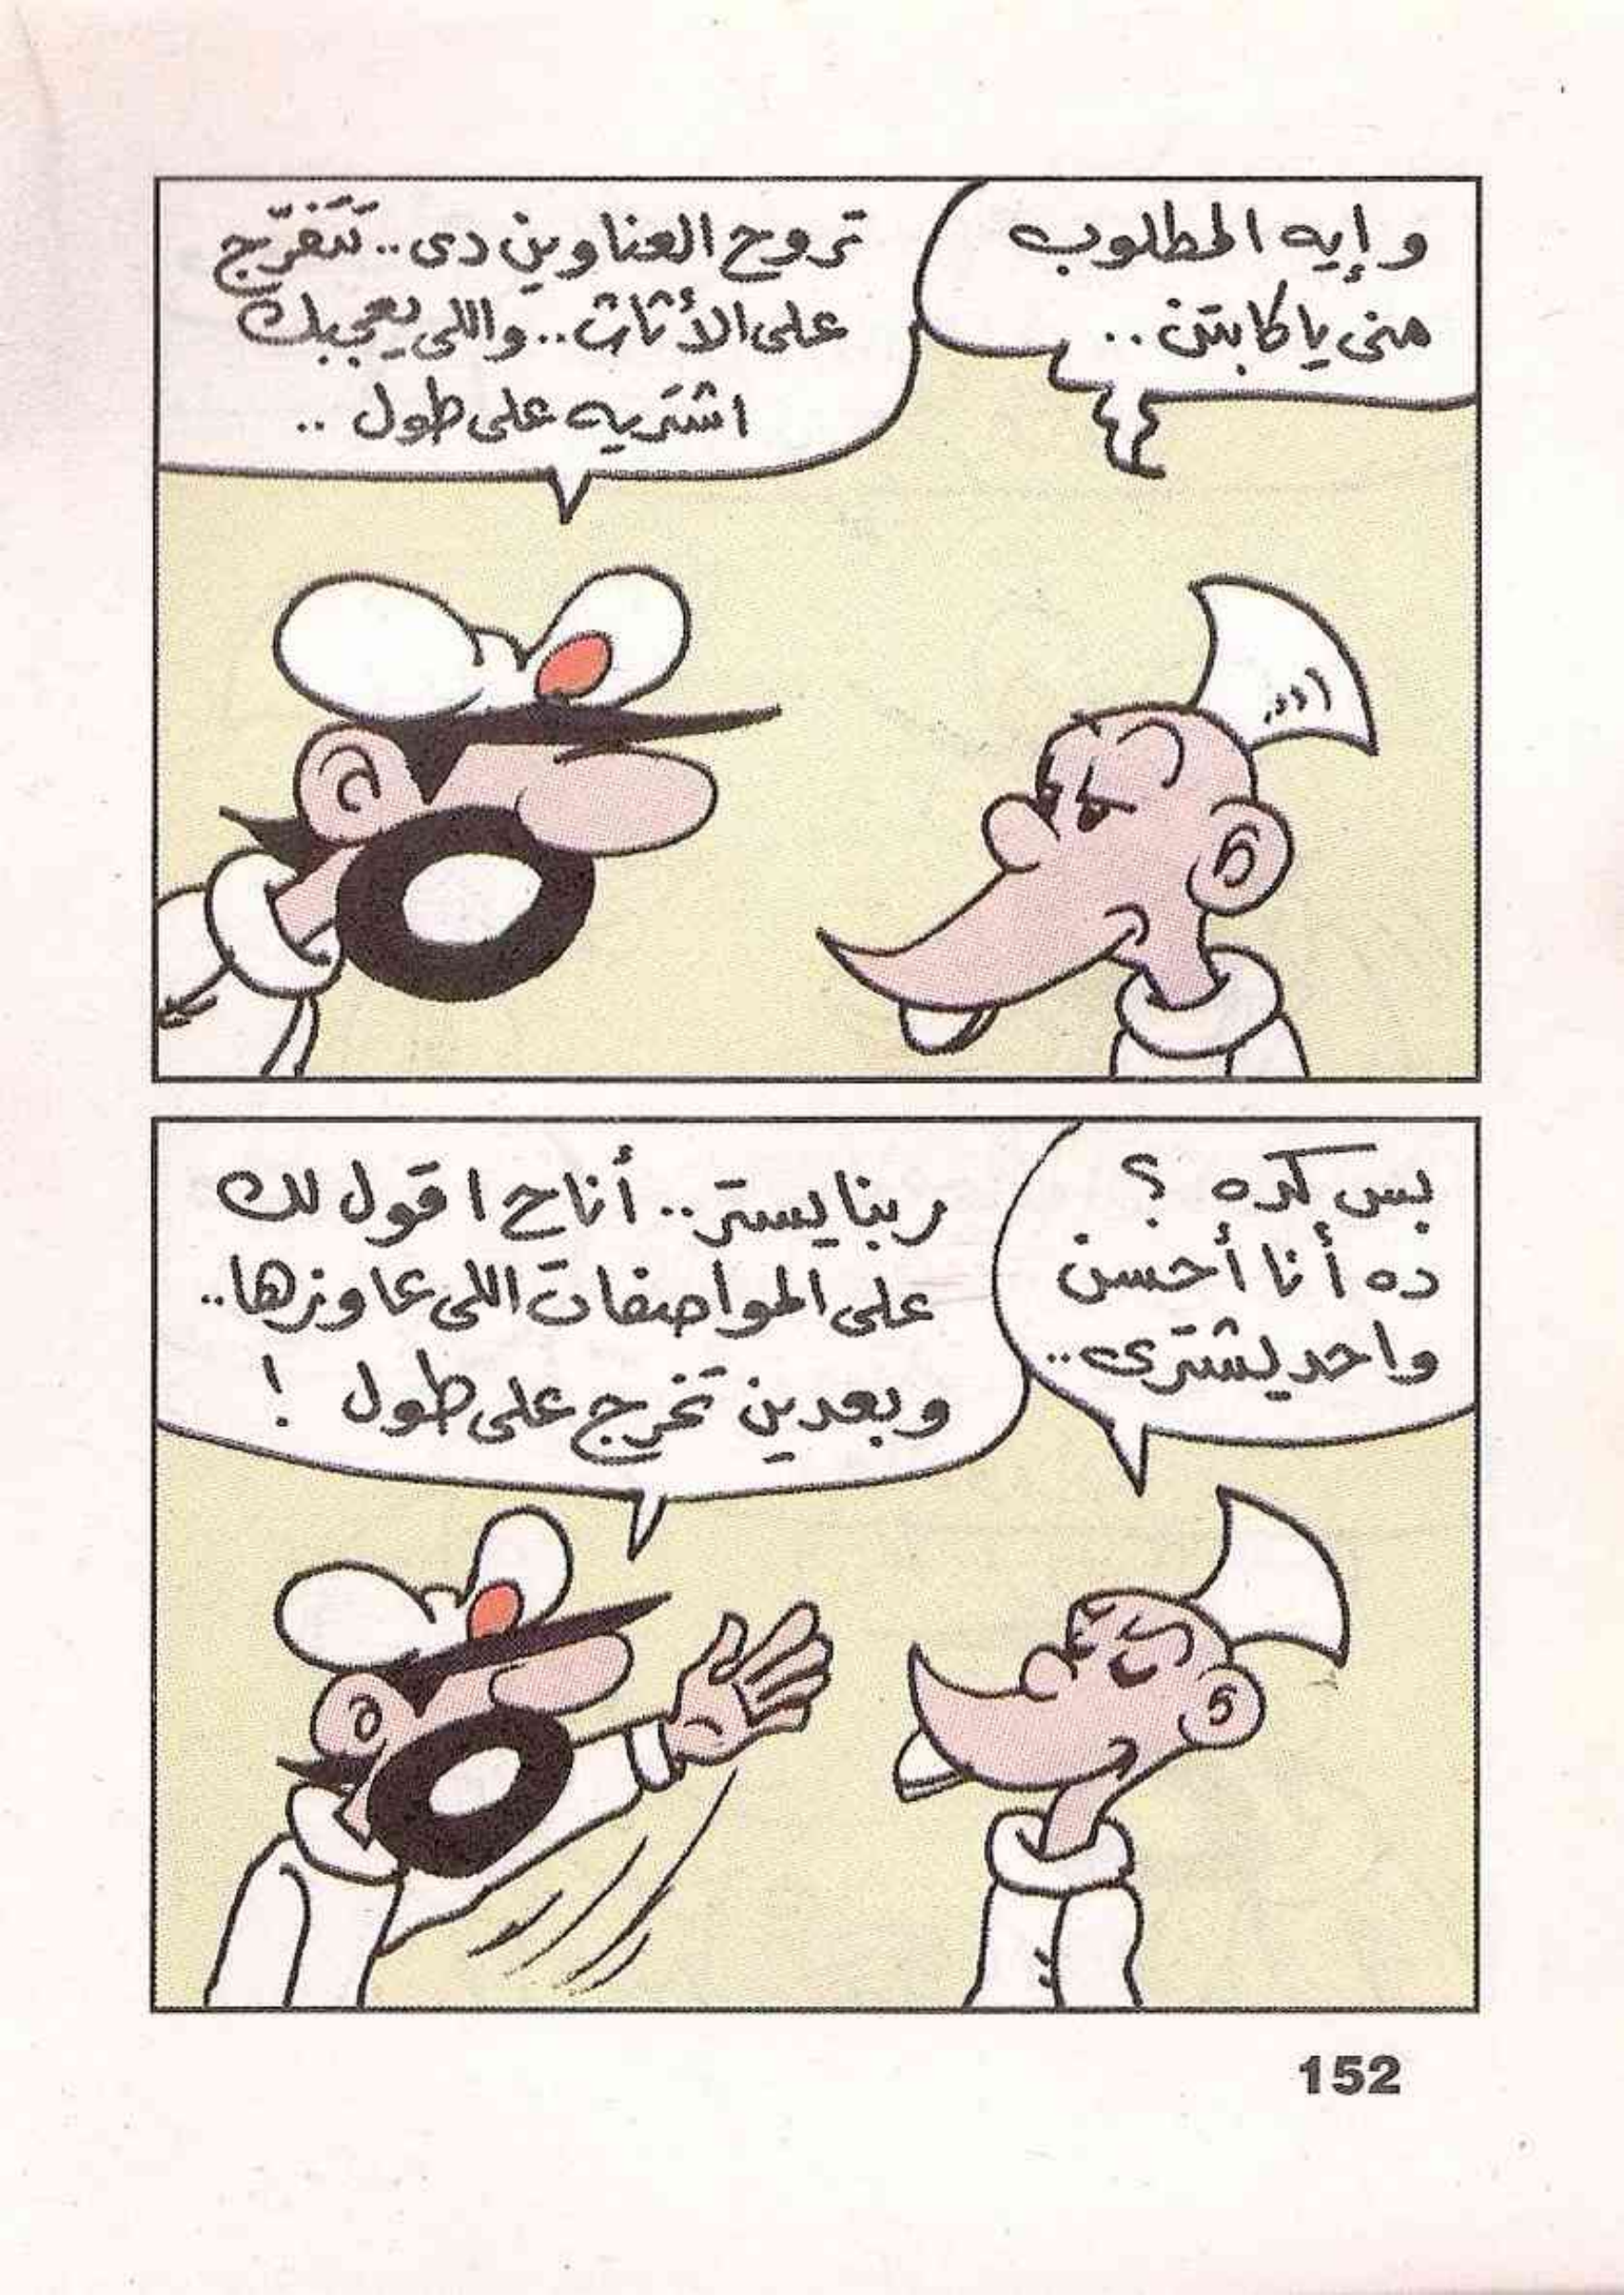 وإيه المطلوب
منى يا كابتن ..
تروح العناوين دى .. تتفرّج
على الأثاث .. واللى يعجبك
اشتريه على طول ..
بس كده ؟
ده أنا أحسن
واحد يشترى ..
ربنا يستر .. أنا ح اقول لك
على المواصفات اللى عاوزها ..
وبعدين تخرج على طول !
152